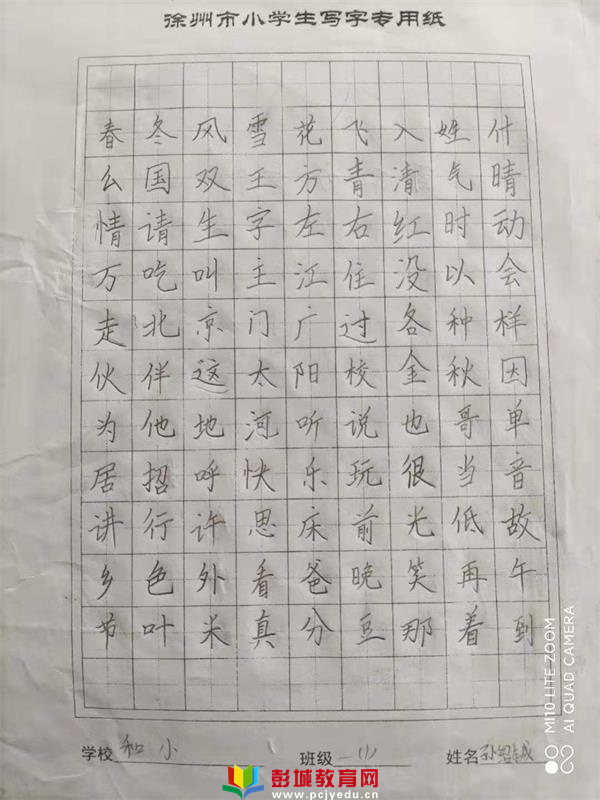 徐州市小学生写字专用纸
春冬风雪花飞入姓什
么国双王方青清气晴
情请生字左右红时动
万吃叫主江住没以会
走北京门广过各种样
伙伴这太阳校金秋因
为他地河听说也哥单
居招呼快乐玩很当音
讲行许思床前光低故
乡色外看爸晚笑再午
节叶米真分豆那着到
学校 和小 班级 一(1) 姓名 孙铭铖
彭城教育网
www.pcjyedu.cn
MI 10 LITE ZOOM
AI QUAD CAMERA